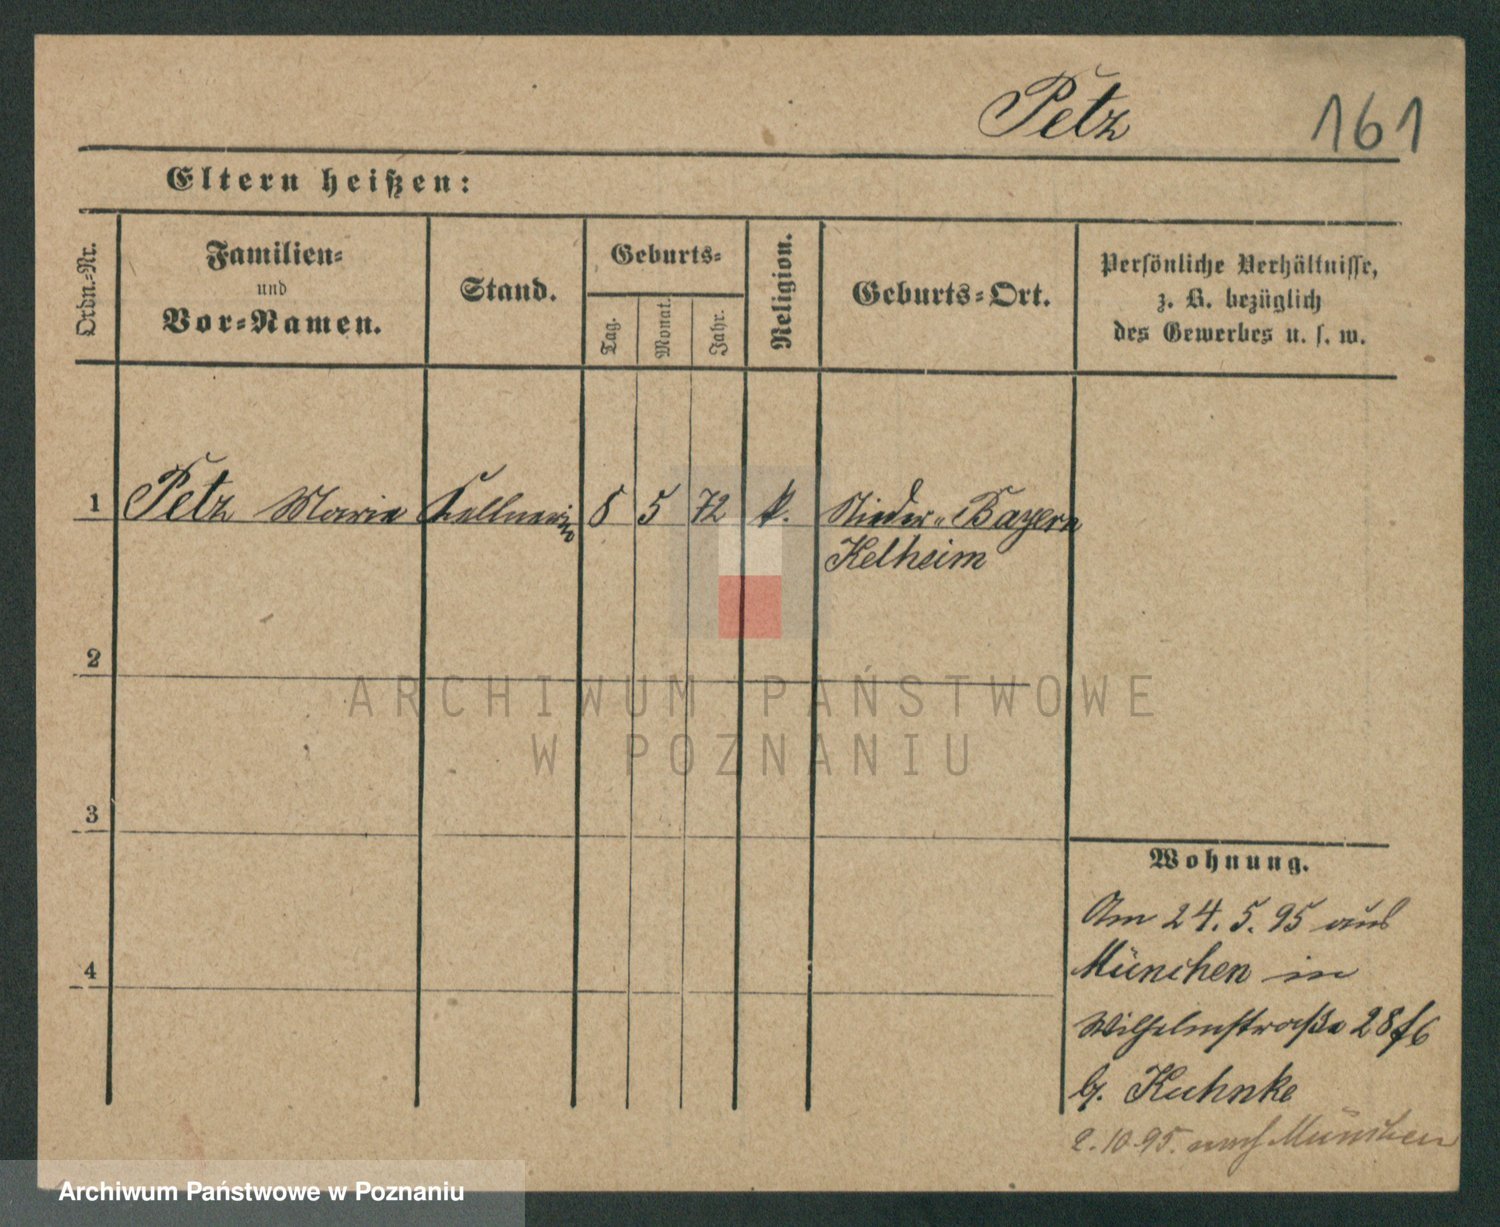 Petz 161
Eltern heißen:
Ordn.-Nr.
Familien-
und
Vor-Namen.
Stand.
Geburts-
Tag.
Monat.
Jahr.
Religion.
Geburts-Ort.
Persönliche Verhältnisse,
z. B. bezüglich
des Gewerbes u. s. w.
1 Petz Marie Kellnerin 8 5 72 k. Nieder-Bayern
Kelheim
2
ARCHIWUM PAŃSTWOWE
W POZNANIU
3
4
Wohnung.
Am 24. 5. 95 aus
München in
Wilhelmstraße 28
b. Kuhnke
2. 10. 95. nach München
Archiwum Państwowe w Poznaniu